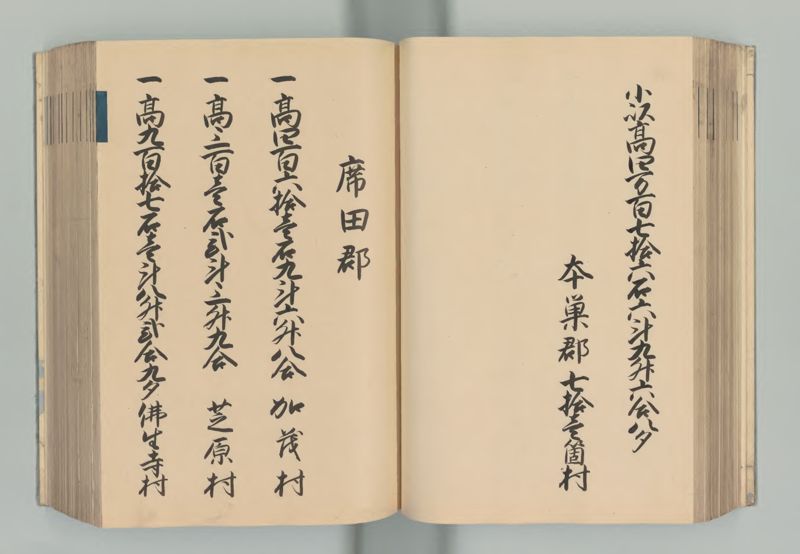 小以高四万百七拾六石六斗九升六合八夕
本巣郡七拾壱箇村
席田郡
一高四百六拾壱石九斗六升八合 加茂村
一高三百壱石弐斗三升九合 芝原村
一高九百拾七石壱斗八升弐合九夕 佛生寺村